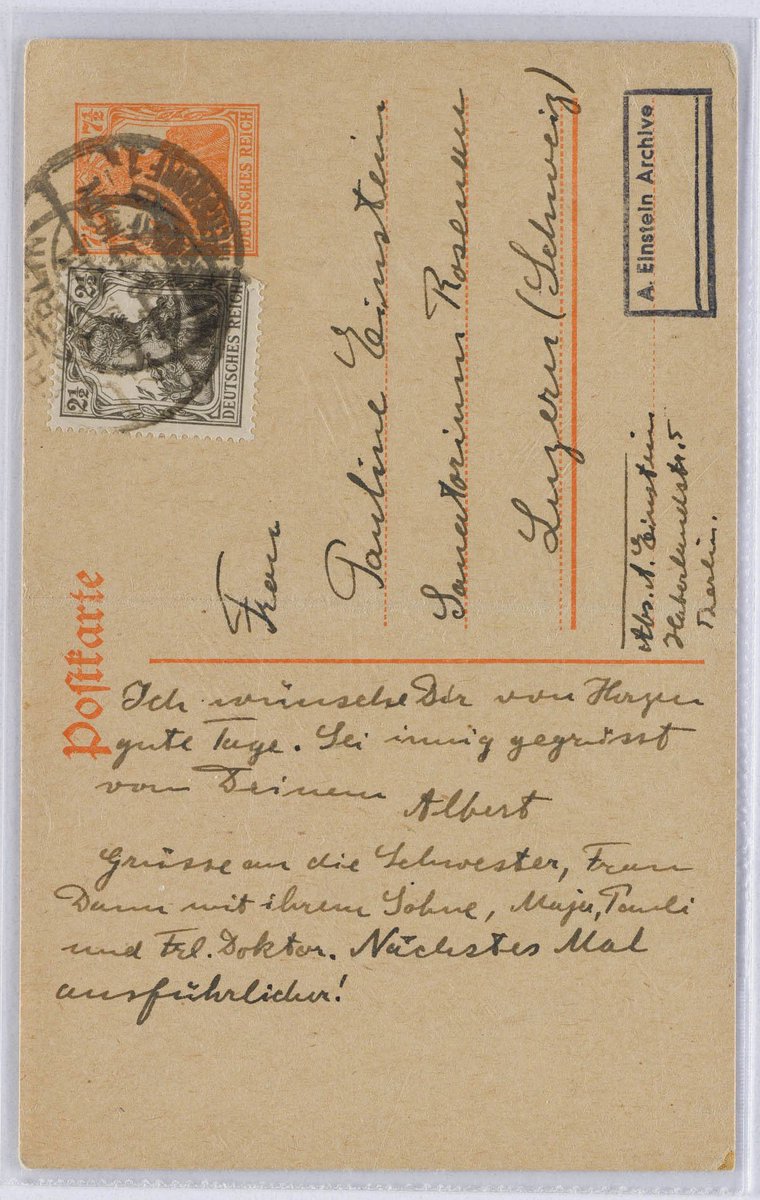 Postkarte
7½ 7½
DEUTSCHES REICH
2½ 2½
DEUTSCHES REICH
BERLIN
Frau
Pauline Einstein
Sanatorium Rosenau
Luzern (Schweiz)
A. Einstein Archive
Abs. A. Einstein
Haberlandstr. 5
Berlin.
Ich wünsche Dir von Herzen
gute Tage. Sei innig gegrüsst
von Deinem Albert
Grüsse an die Schwester, Frau
Dann mit ihrem Sohne, Maja, Pauli
und Frl. Doktor. Nächstes Mal
ausführlicher!